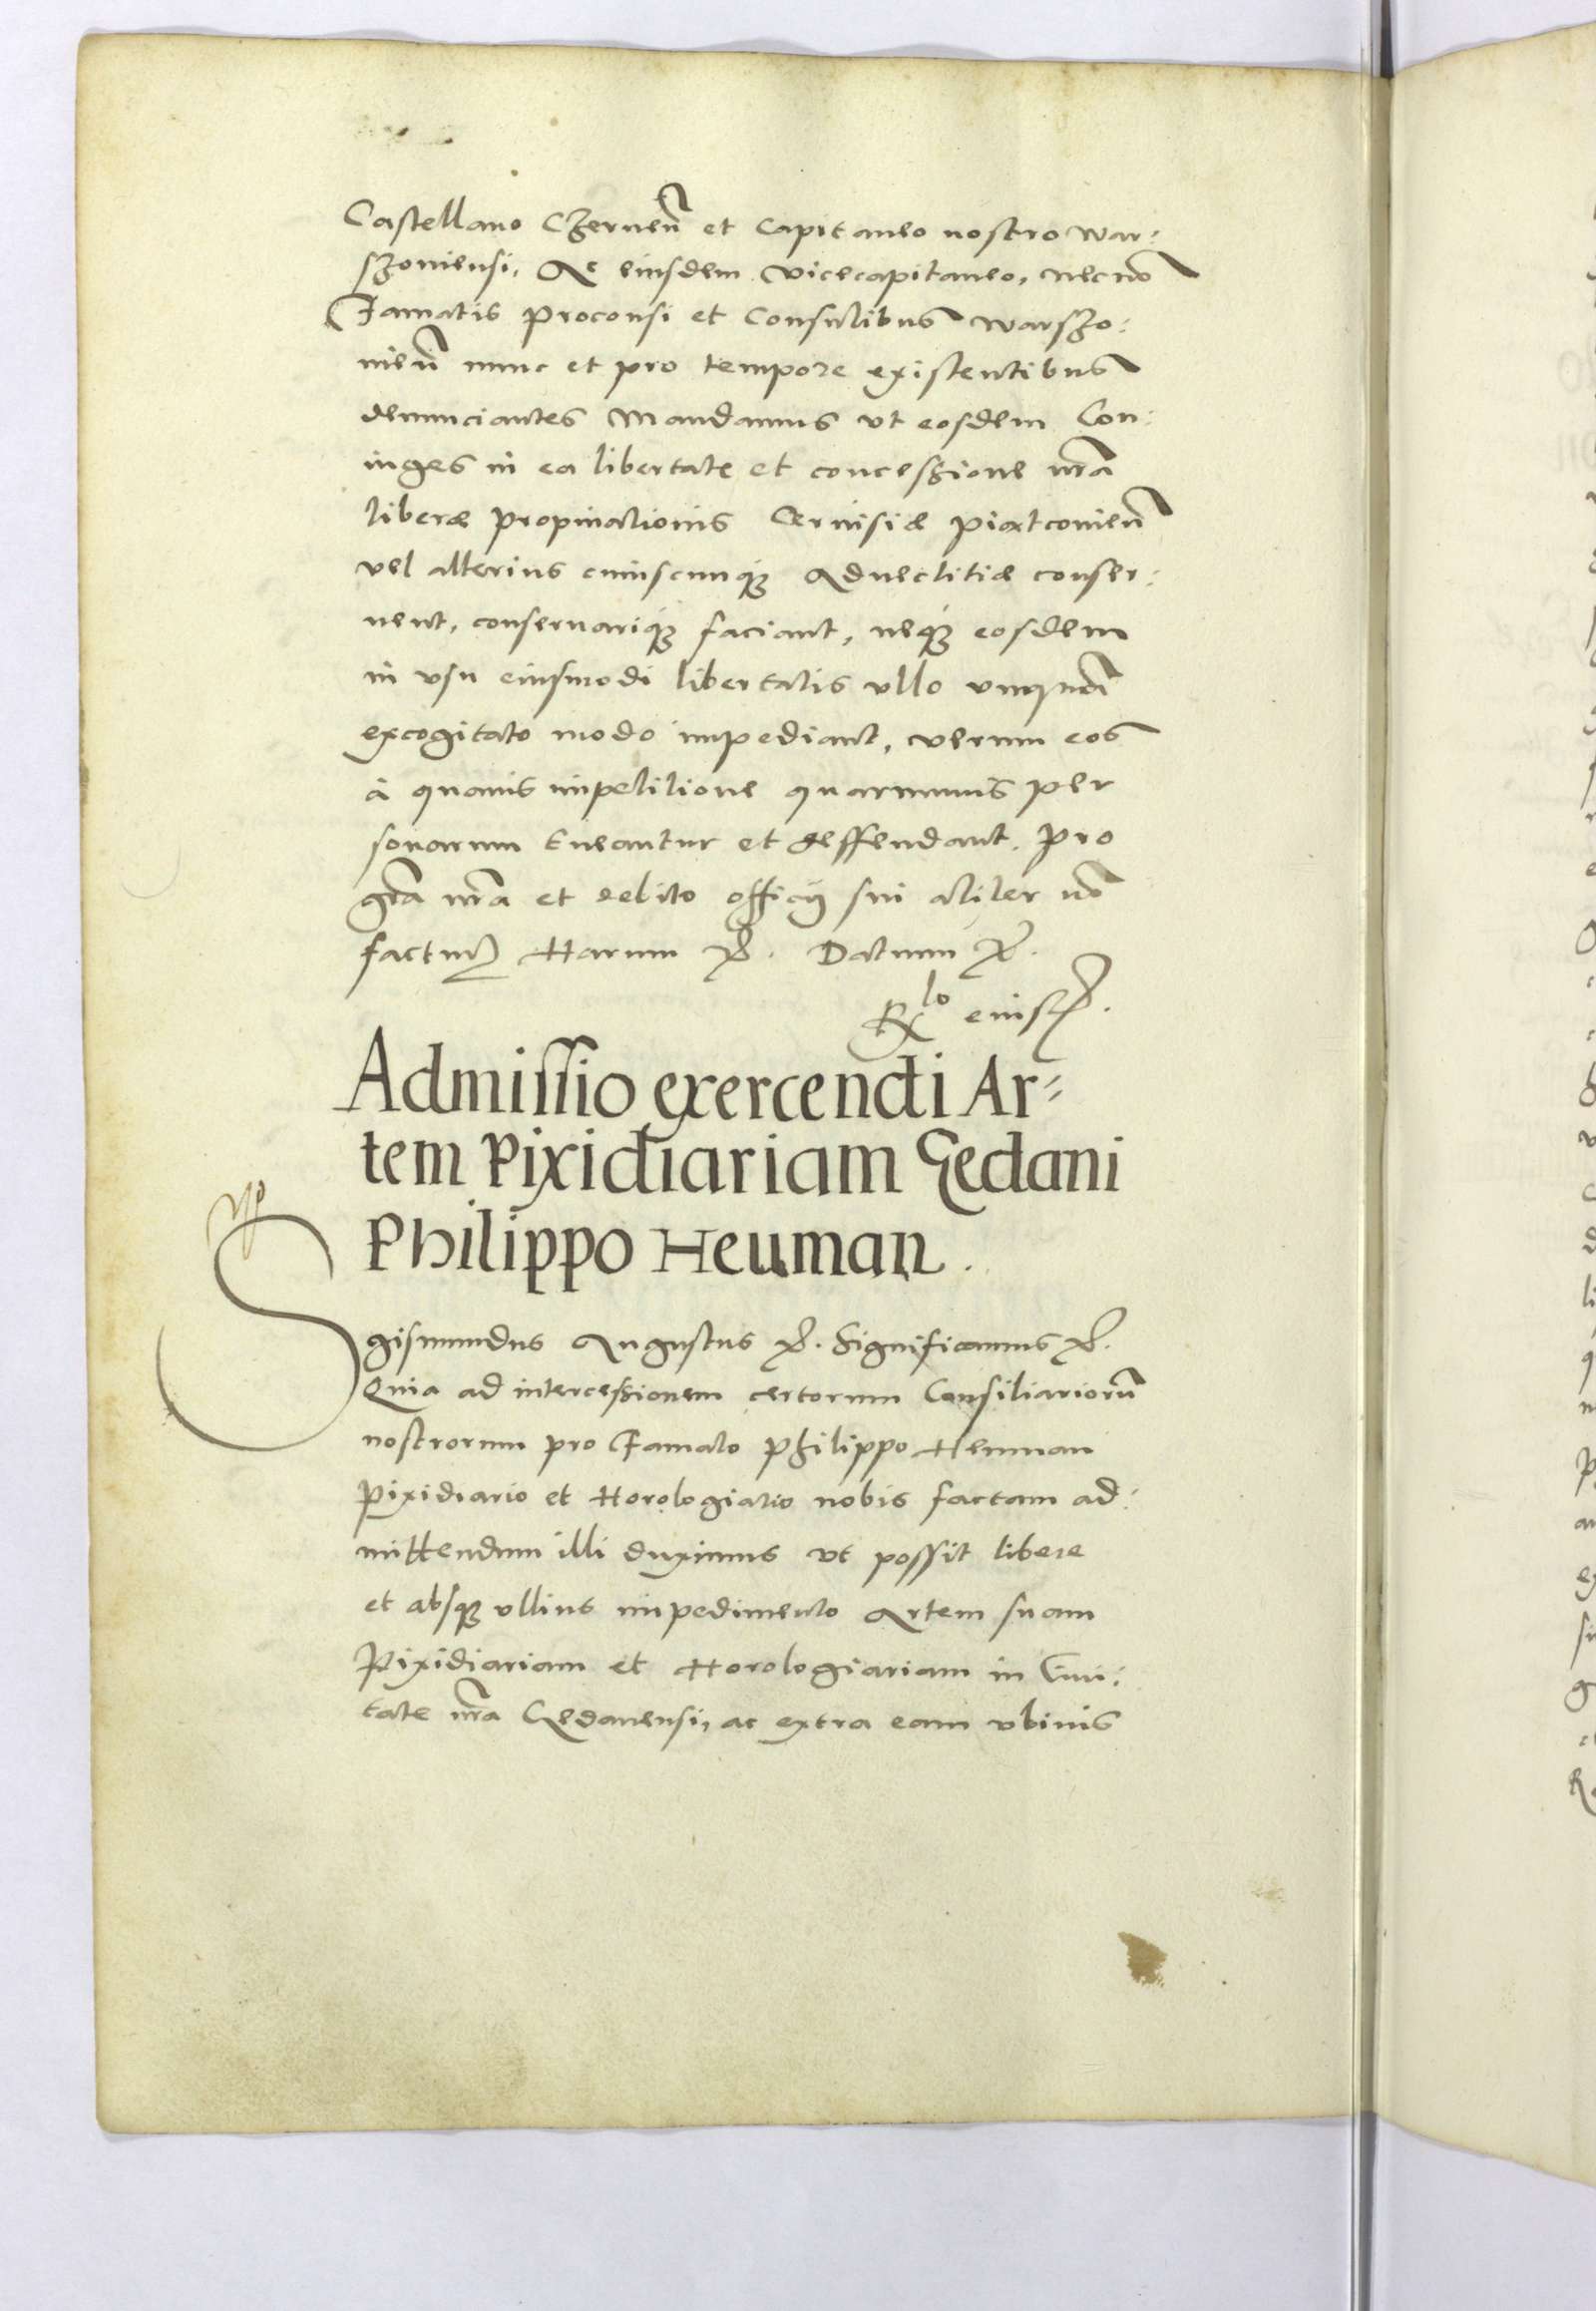 Castellano Czernen̄ et Capitaneo nostro War:
szoviensi, Ac eiusdem Vicecapitaneo, necnō
Famatis Proconsi et Consulibus Warszo:
vien̄ nunc et pro tempore existentibus
denunciantes Mandamus vt eosdem Con:
iuges in ea libertate et concessione nr̄a
liberæ propinationis Cervisiæ Piatcovien̄
vel alterius cuiuscunq₃ Aduectitiæ conser:
uent, conseruariq₃ faciant, neq₃ eosdem
in vsu eiusmodi libertatis vllo vnquā
excogitato modo impediant, verum eos
à quauis impetitione quarumuis per
sonarum tueantur et deffendant. Pro
gr̄a nr̄a et debito officij sui aliter nō
factur̄ Harum &. Datum &.
Rlo eius &.
Admissio exercendi Ar=
tem Pixidiariam Gedani
Philippo Heuman.
Sigismundus Augustus &. Significamus &.
Quia ad intercessionem certorum Consiliariorū
nostrorum pro Famato Philippo Heuman
Pixidiario et Horologiario nobis factam ad:
mittendum illi duximus vt possit libere
et absq₃ vllius impedimento Artem suam
Pixidiariam et Horologiariam in Ciui:
tate nr̄a Gedanensi, ac extra eam vbiuis